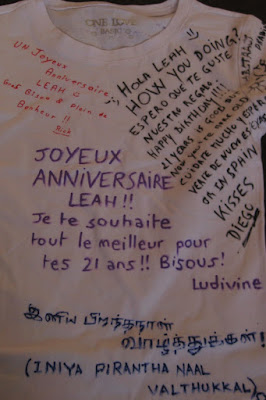 ONE LOVE
UN Joyeux
Anniversaire
LEAH ☺
Gros Bisou & Plein de
Bonheur !!
HOLA LEAH
HOW YOU DOING?
ESPERO QUE TE GUSTE
NUESTRO REGALO
HAPPY BIRTHDAY!!!!
21 YEARS IS GOOD
CUIDATE MUCHO
VERTE DE NUEVO
OR IN SPAIN
KISSES
DIEGO
JOYEUX
ANNIVERSAIRE
LEAH !!
Je te souhaite
tout le meilleur pour
tes 21 ans!! Bisous!
Ludivine
இனிய பிறந்தநாள்
வாழ்த்துக்கள்!
(INIYA PIRANTHA NAAL
VALTHUKKAL)